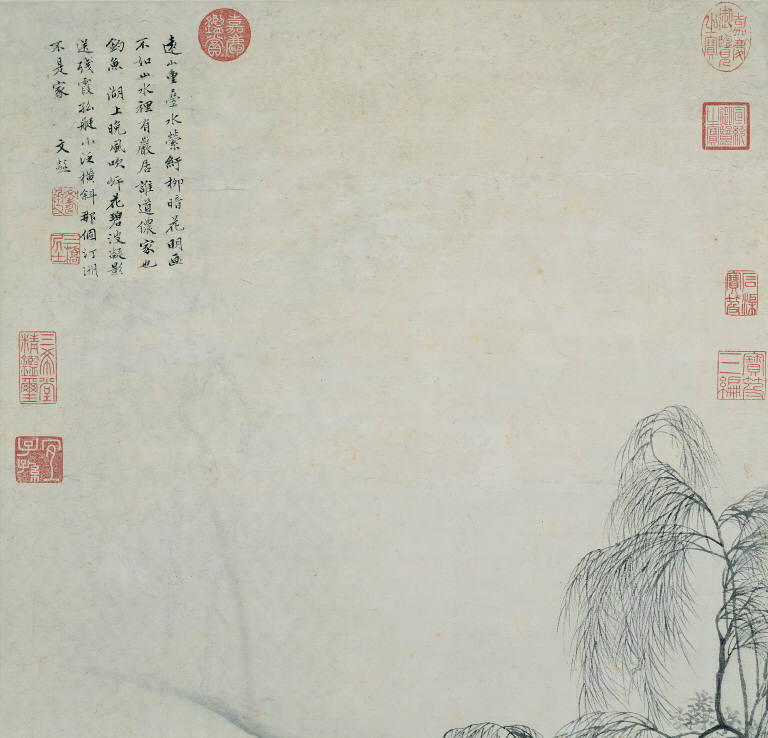 遠山重疊水縈紆柳暗花明画
不如山水裡有巖居誰道儂家也
釣魚 湖上晚風吹岸花碧波凝影
送殘霞孤艇小泛橫斜那個汀洲
不是家 文彭
嘉慶御覽之寶
宣統御覽之寶
石渠寶笈
寶笈三編
嘉慶鑑賞
三橋居士
三希堂精鑑璽
宜子孫